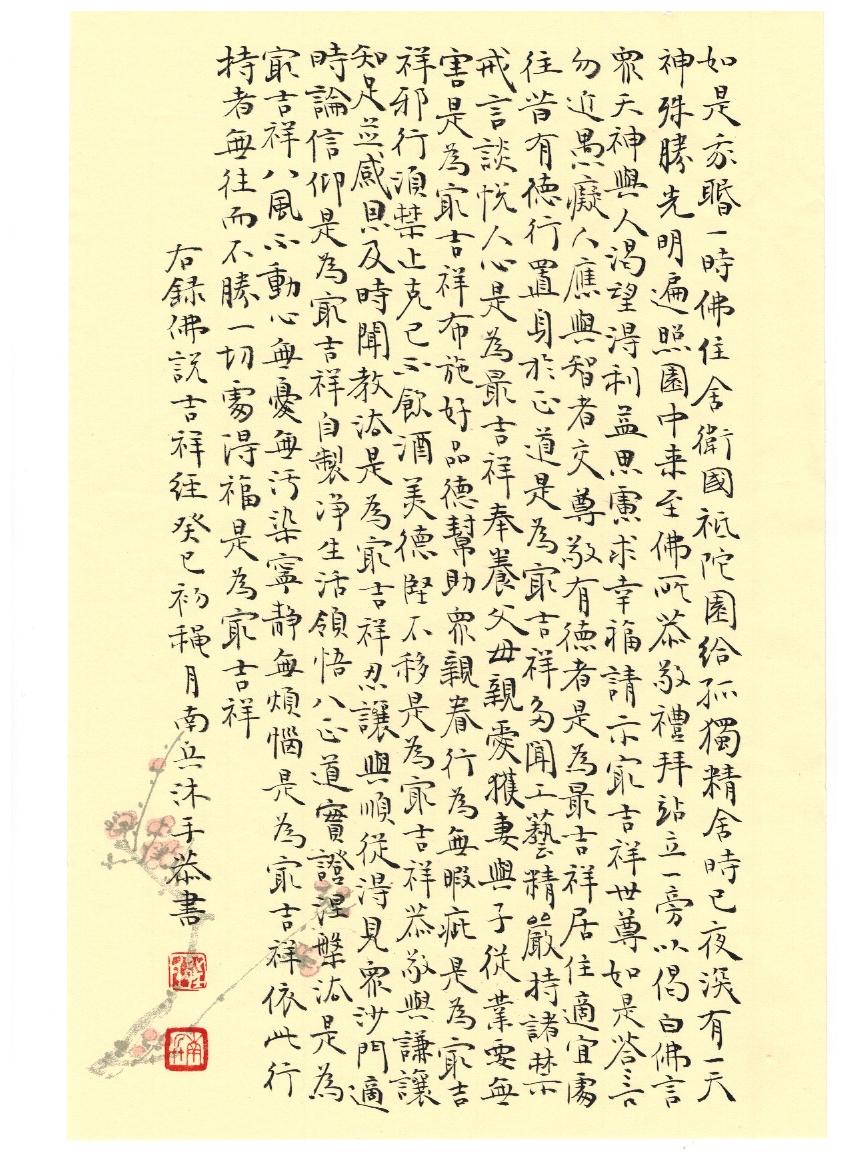 如是我聞一時佛住舍衛國祇陀園給孤獨精舍時已夜深有一天
神殊勝光明遍照園中来至佛所恭敬禮拜站立一旁以偈白佛言
眾天神與人渴望得利益思慮求幸福請示最吉祥世尊如是答言
勿近愚癡人應與智者交尊敬有德者是為最吉祥居住適宜處
往昔有德行置身於正道是為最吉祥多聞工藝精嚴持諸禁
戒言談悅人心是為最吉祥奉養父母親愛獲妻與子從業要無
害是為最吉祥布施好品德幫助眾親眷行為無暇疵是為最吉
祥邪行須禁止克己不飲酒美德堅不移是為最吉祥恭敬與謙讓
知足並感恩及時聞教法是為最吉祥忍讓與順從得見眾沙門適
時論信仰是為最吉祥自製净生活領悟八正道實證涅槃法是為
最吉祥八風不動心無憂無污染寧静無煩惱是為最吉祥依此行
持者無往而不勝一切處得福是為最吉祥
右錄佛説吉祥经癸巳初穐月南兵沐手恭書